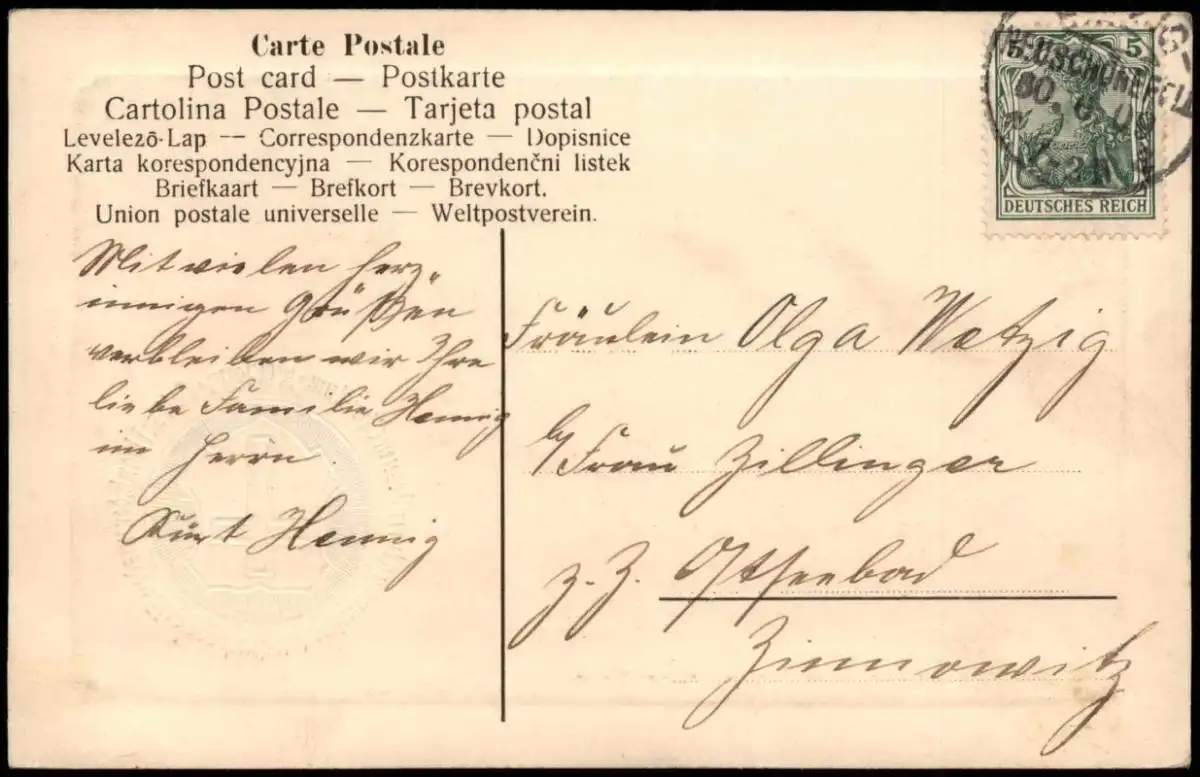 Carte Postale
Post card — Postkarte
Cartolina Postale — Tarjeta postal
Levelezõ-Lap -- Correspondenzkarte — Dopisnice
Karta korespondencyjna — Korespondenčni listek
Briefkaart — Brefkort — Brevkort.
Union postale universelle — Weltpostverein.
5 5
NEUSCHÖNEFELD
30. 6. 0
DEUTSCHES REICH
Mit vielen herz-
innigen Grüßen
verbleiben wir Ihre
liebe Familie Hennig
im Herrn.
Kurt Hennig
Fräulein Olga Wetzig
b/ Frau Zillinger
z. Z. Ostseebad
Zinnowitz